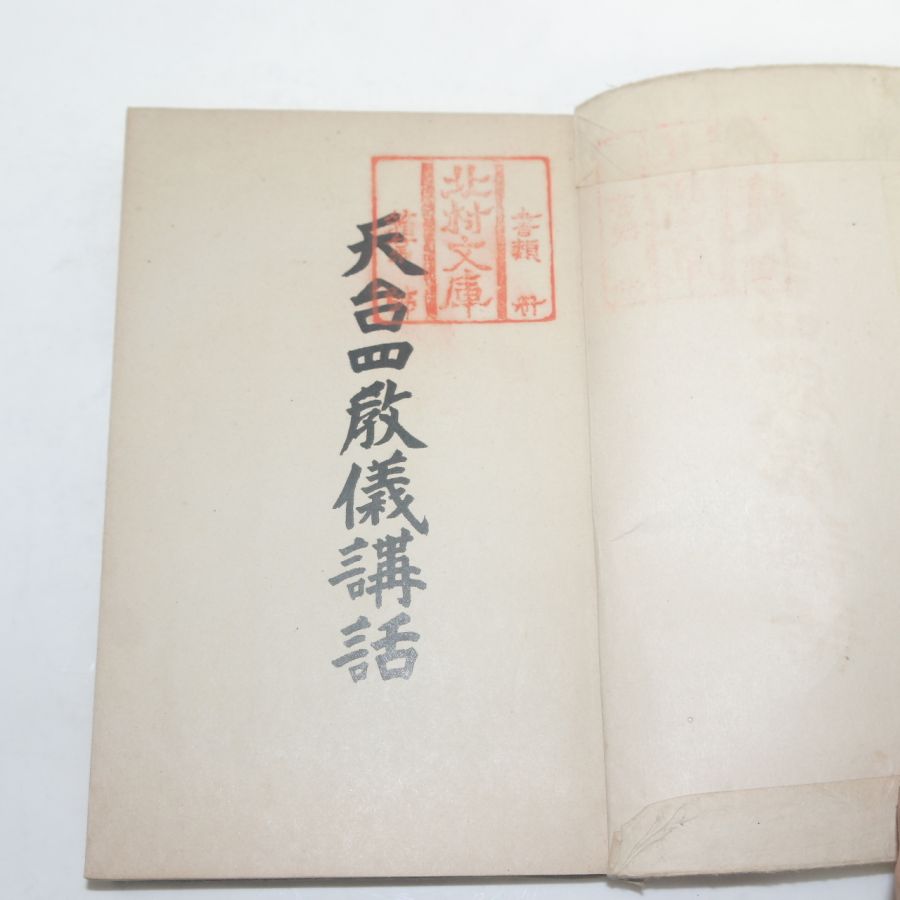 書類 冊
北村文庫
天台四教儀講話